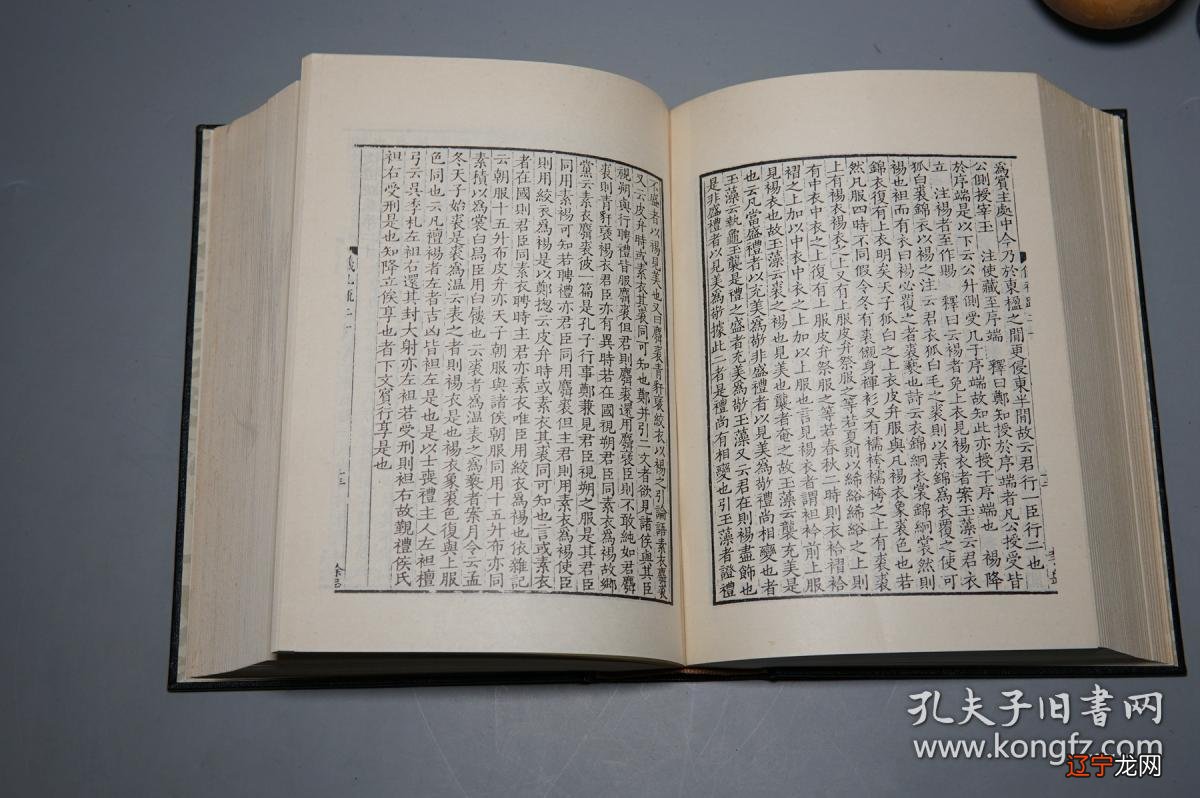 爲賓主處中今乃於東楹之間更侵東半間故云君行一臣行二也
公側授宰玉　注使藏至序端　釋曰鄭知授於序端者凡公授受皆
於序端是以下云公升側受几于序端故知此亦授于序端也　裼降
立　注裼者至作賜　釋曰云裼者免上衣見裼衣者案玉藻云君衣
狐白裘錦衣以裼之注云君衣狐白毛之裘則以素錦爲衣覆之使可
裼也袒而有衣曰裼必覆之者裘褻也詩云衣錦絅衣裳錦絅裳然則
錦衣復有上衣明矣天子狐白之上衣皮弁服與凡裼衣象裘色也若
然凡服四時不同假令冬有裘儭身襌衫又有襦袴襦袴之上有裘裘
上有裼衣裼衣之上又有上服皮弁祭服之等若夏則以絺綌絺綌之上則
有中衣中衣之上復有上服皮弁祭服之等若春秋二時則衣袷褶袷
褶之上加以中衣中衣之上加以上服也言見裼衣者謂袒衿前上服
見裼衣也故玉藻云裘之裼也見美也襲者奄之故玉藻云襲充美是
也云凡當盛禮者以充美爲敬非盛禮者以見美爲敬禮尚相變也者
玉藻云執龜玉襲是禮之盛者充美爲敬玉藻又云君在則裼盡飾也
是非盛禮者以見美爲敬據此二者是禮尚有相變也引玉藻者證禮
不盛者以裼見美也又曰麛裘青豻褎絞衣以裼之引論語素衣麛裘
又云皮弁時或素衣其裘同可知也鄭并引二文者欲見諸侯與其臣
視朔與行聘禮皆服麛裘但君則麛裘還用麛褎臣則不敢純如君麛
裘則青豻褎裼衣君臣亦有異時若在國視朔君臣同素衣爲裼故鄉
黨云素衣麛裘彼一篇是孔子行事鄭兼見君臣視朔之服是其君臣
同用素裼可知若聘禮亦君臣同用麛裘但主君則用素衣爲裼使臣
則用絞衣爲裼是以鄭揔云皮弁時或素衣其裘同可知也言或素衣
者在國則君臣同素衣聘時主君亦素衣唯臣用絞衣爲裼也依雜記
云朝服十五升布皮弁亦天子朝服與諸侯朝服同用十五升布亦同
素積以爲裳白舄臣用白屨也　云裘者爲溫表之爲其褻者案月令云孟
冬天子始裘是裘爲溫云表之者則裼衣是也裼衣象裘色復與上服
色同也云凡襢裼者左者吉凶皆袒左是也是以士喪禮主人左袒檀
弓云吳季札左袒右還其封大射亦左袒若受刑則袒右故覲禮侯氏
袒右受刑是也知降立俟享也者下文賓行享是也
孔夫子旧书网
www.kongfz.com
辽宁龙网